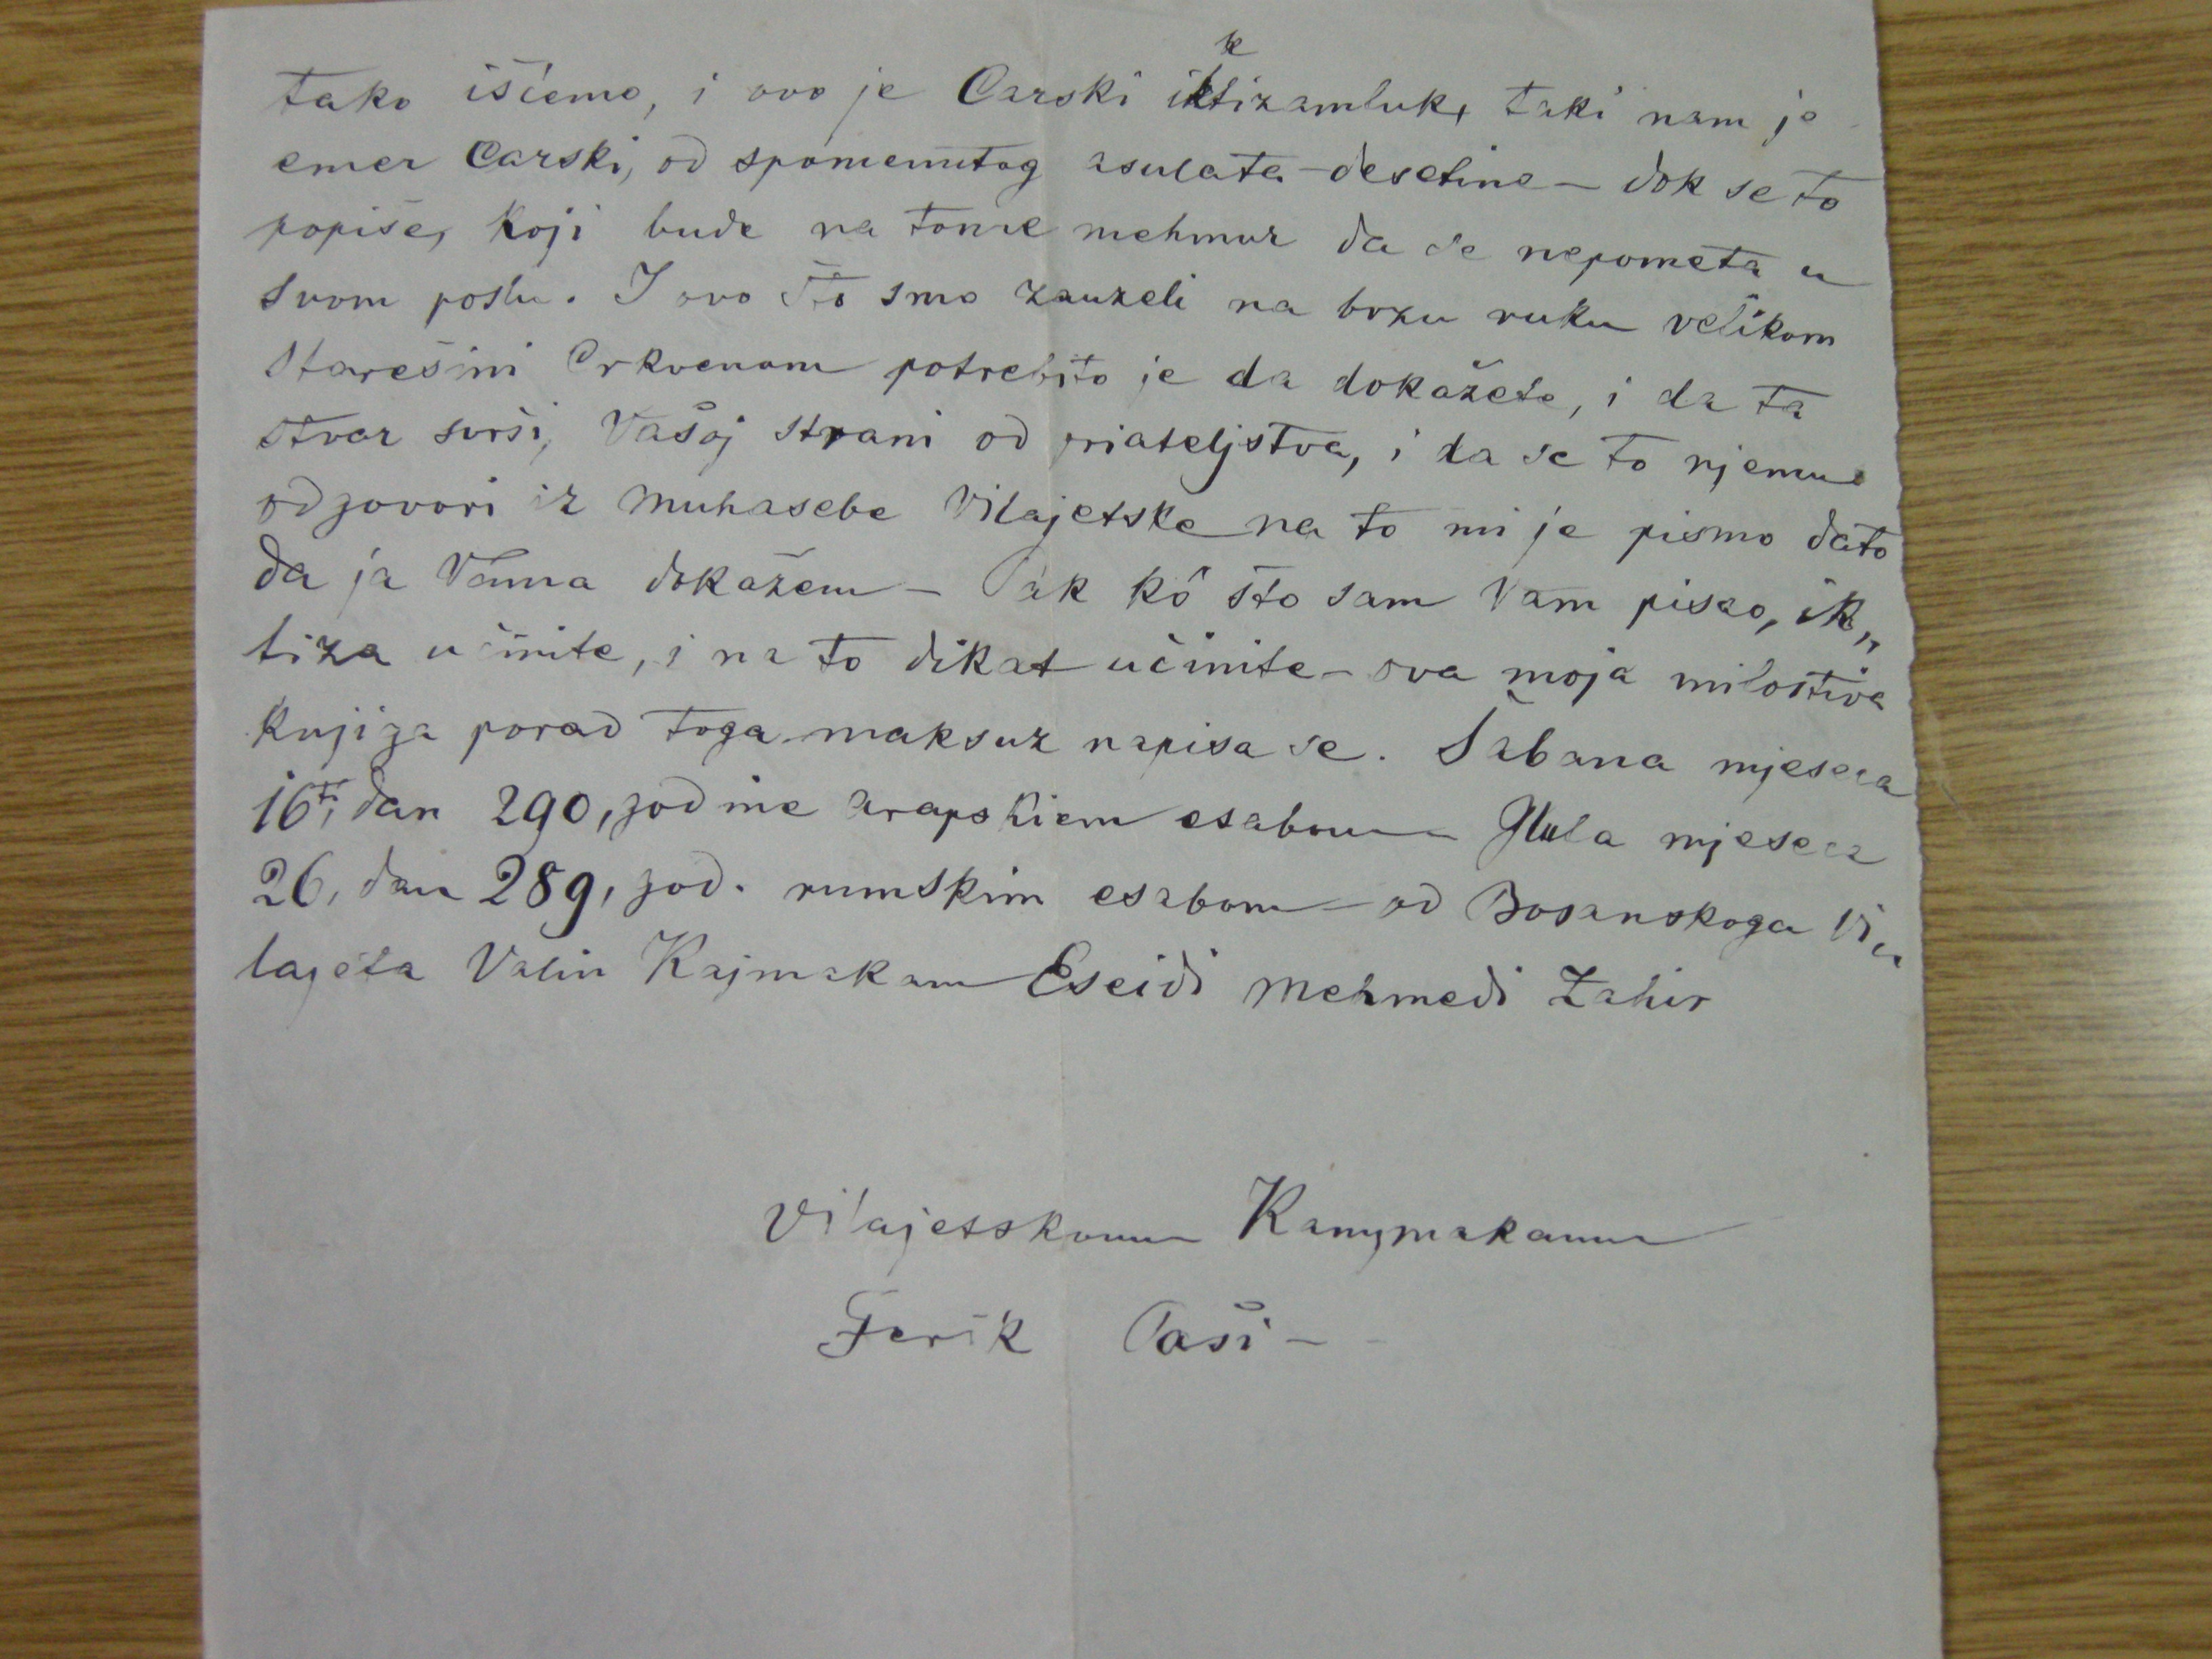 tako išćemo, i ovo je Carski iktizamluk, taki nam je
emer Carski, od spomenutog asulata - desetine - dok se to
popiše, koji bude na tome mehmur da se nepometa u
svom poslu. I ovo što smo zauzeli na brzu ruku velikom
starešini Crkvenom potrebito je da dokažete, i da ta
stvar svrši, Vašoj strani od priateljstva, i da se to njemu
odgovori iz muhasebe Vilajetske na to mi je pismo dato
da ja Vama dokažem - Pak kô što sam Vam pisao, ik„
tiza učinite, i na to dikat učinite - ova moja milostiva
knjiga porad toga maksuz napisa se. Šabana mjeseca
16ti, dan 290, godine arapskiem esabom Ilula mjeseca
26, dan 289, god. rumskim esabom - od Bosanskoga Vi„
lajeta Valin Kajmakam Eseidi Mehmedi Zahir
Vilajetskomu Kamymakamu
Ferik Paši -